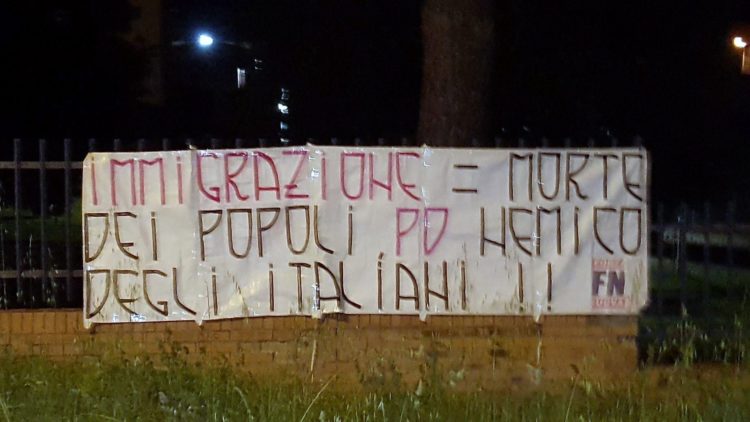 IMMIGRAZIONE = MORTE
DEI POPOLI PD NEMICO
DEGLI ITALIANI !!
FORZA
FN
NUOVA